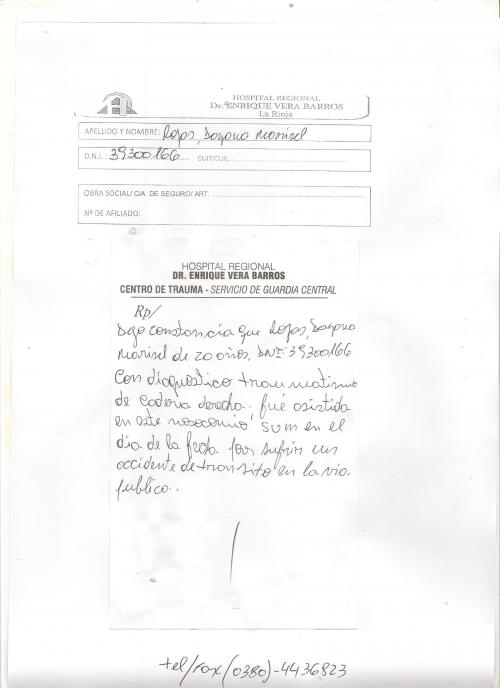 HOSPITAL REGIONAL
Dr. ENRIQUE VERA BARROS
La Rioja
APELLIDO Y NOMBRE: Rojas, Dayana Marisel
D.N.I.: 39300166 CUIT/CUIL:
OBRA SOCIAL/ CIA. DE SEGURO/ ART:
Nº DE AFILIADO:
HOSPITAL REGIONAL
DR. ENRIQUE VERA BARROS
CENTRO DE TRAUMA - SERVICIO DE GUARDIA CENTRAL
Rp/
Dejo constancia que Rojas, Dayana
Marisel de 20 años, DNI: 39300166
Con diagnostico traumatismo
de Cadera derecha, fué asistida
en este nosocomio, SUM en el
día de la fecha por sufrir un
accidente de transito en la via
publica.
tel/fax (0380)-4436823